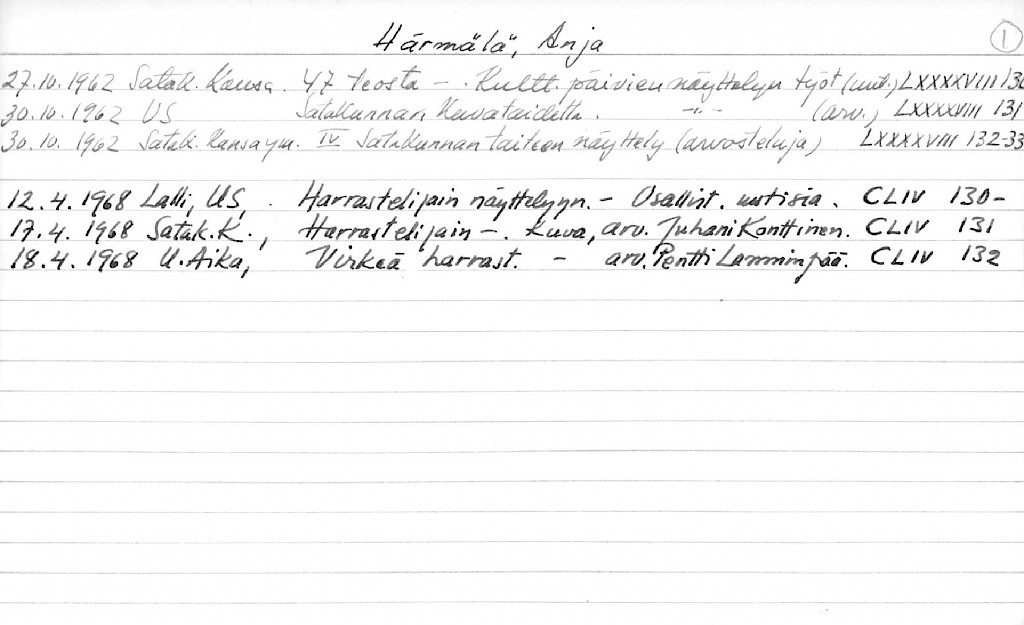 Härmälä, Anja
1
27.10.1962 Satak. Kansa. 47 teosta - . Kultt. päivien näyttelyn työt (uut.) LXXXXVIII 130
30.10.1962 US Satakunnan Kuvataidetta. -"- (arv.) LXXXXVIII 131
30.10.1962 Satak. Kansa ym. IV Satakunnan taiteen näyttely (arvosteluja) LXXXXVIII 132-33
12.4.1968 Lalli, US, . Harrastelijain näyttelyyn. - Osallist. uutisia. CLIV 130-
17.4.1968 Satak.K., Harrastelijain -. kuva, arv. Juhani Konttinen. CLIV 131
18.4.1968 U.Aika, Virkeä harrast. - arv. Pentti Lamminpää. CLIV 132